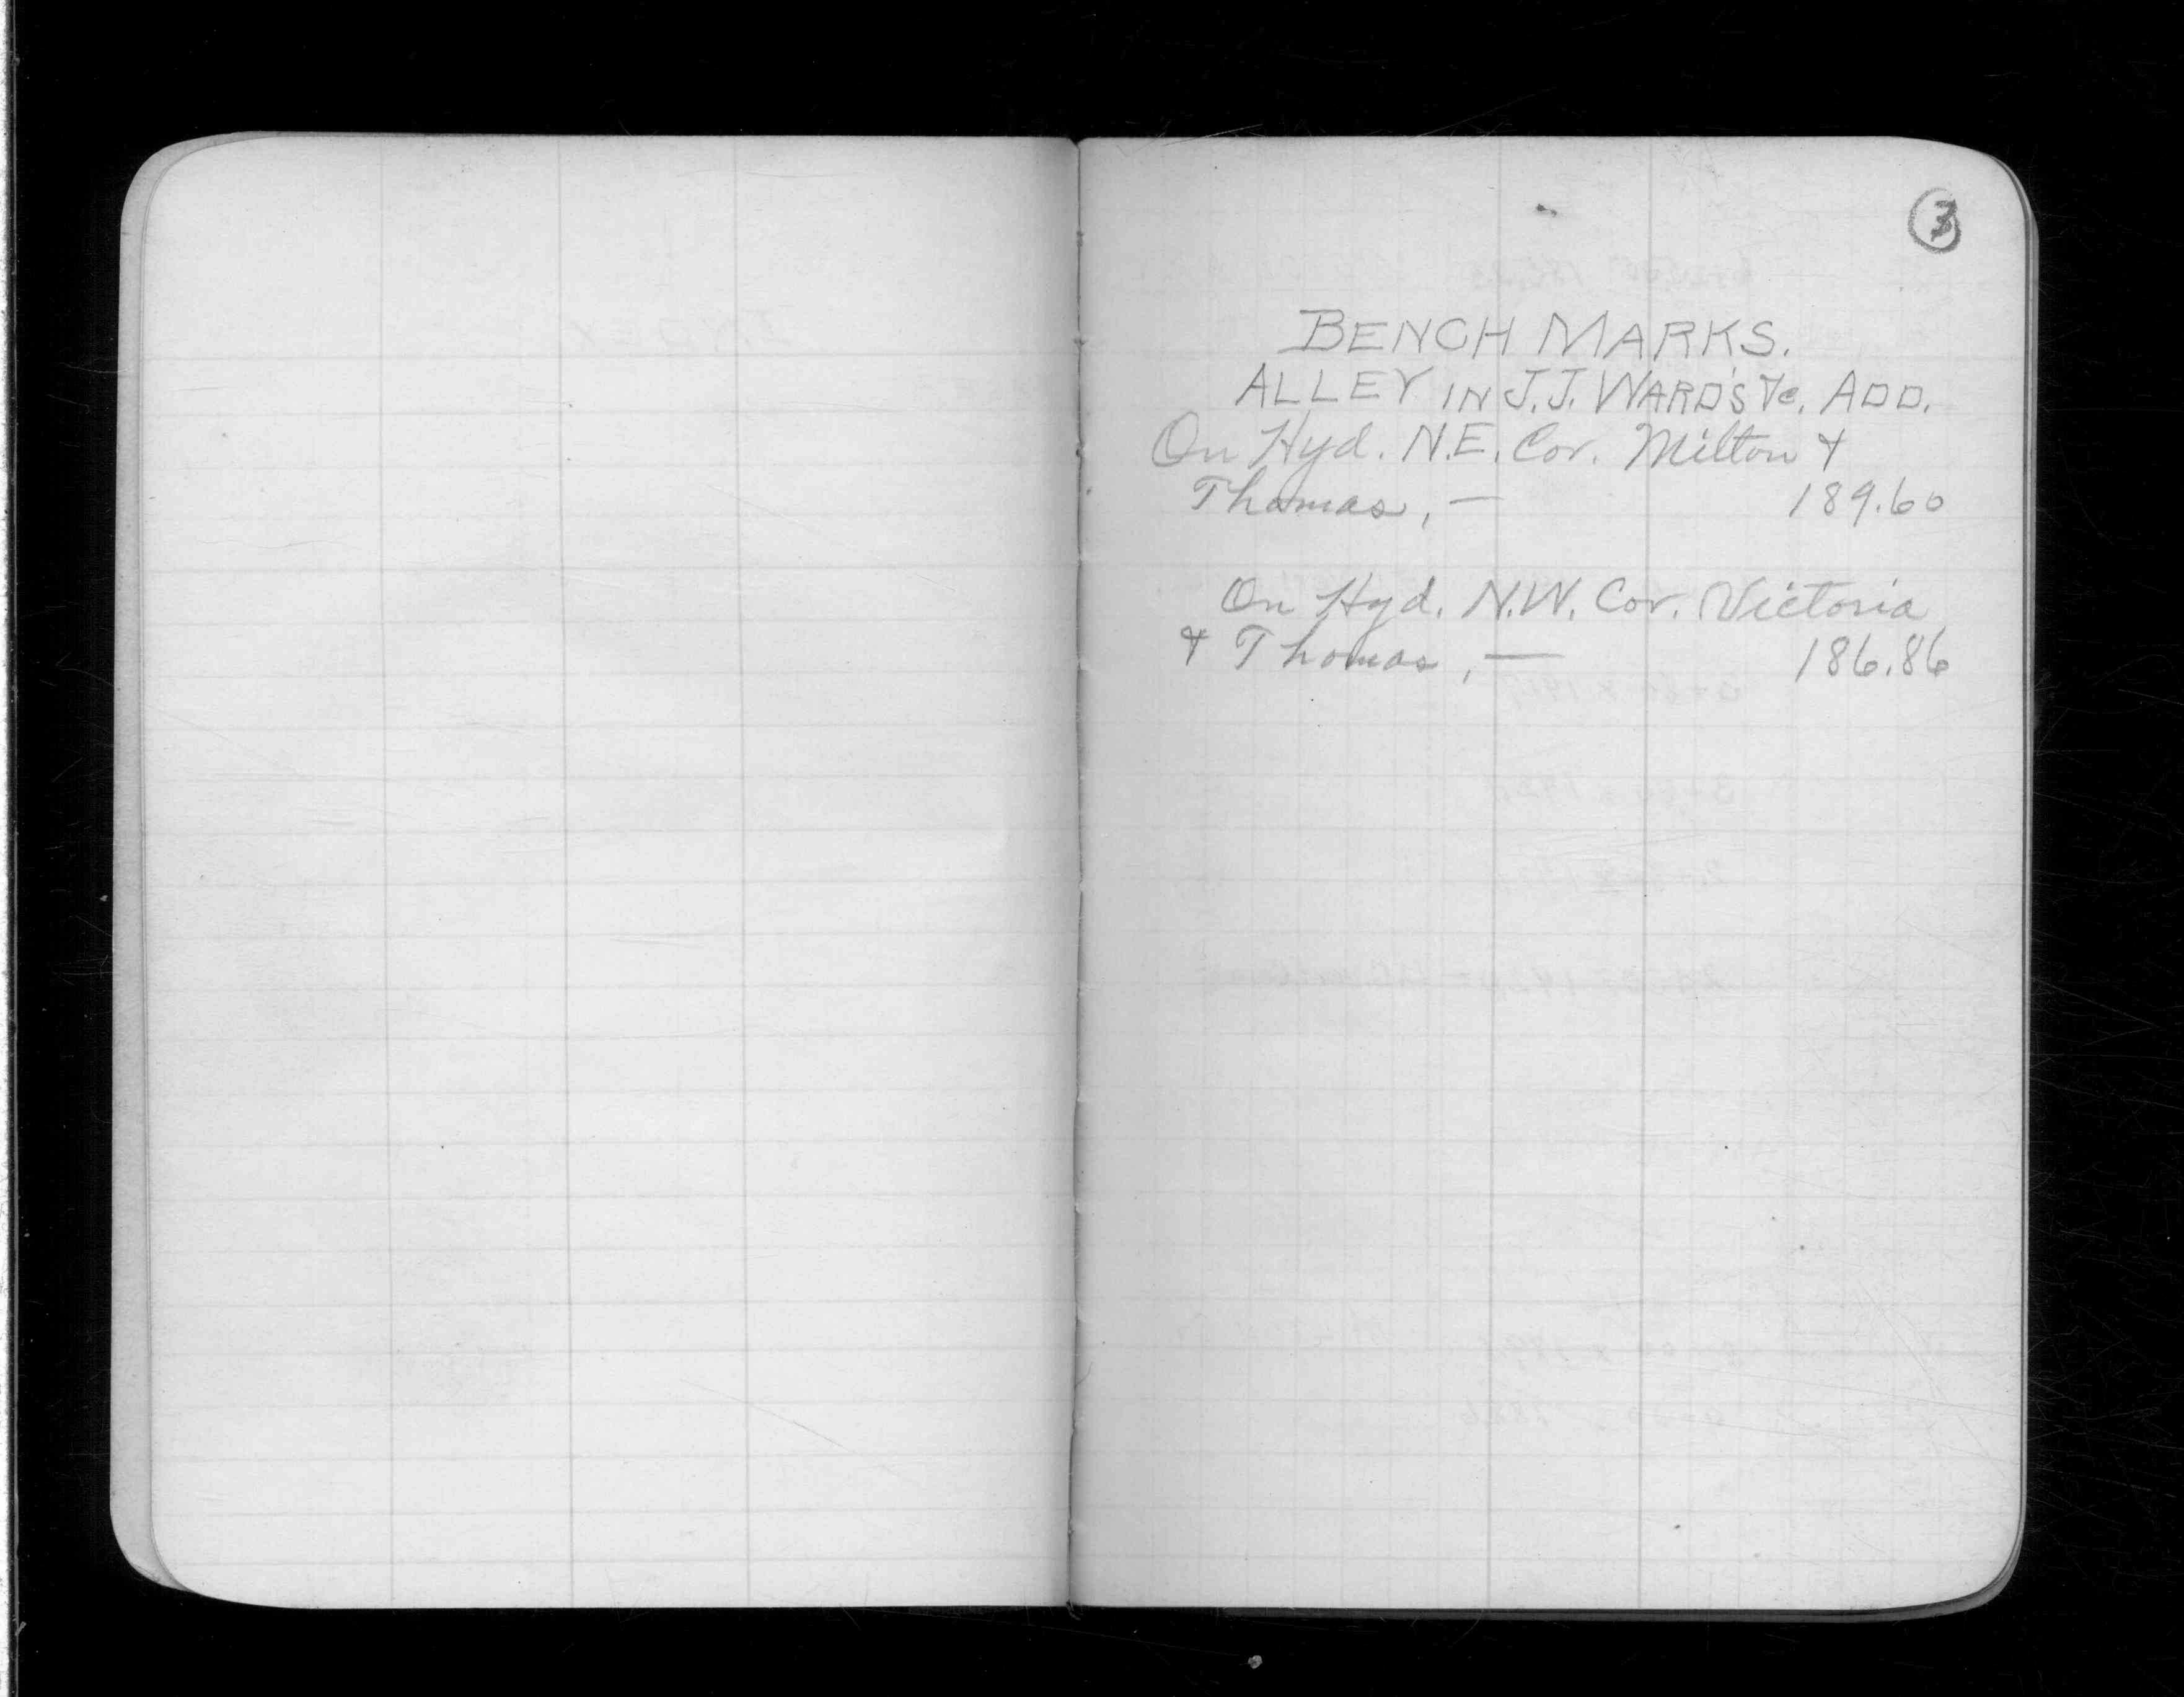 3
BENCH MARKS.
ALLEY IN J.J. WARD'S &c. ADD.
On Hyd. N.E. Cor. Milton &
Thomas, — 189.60
On Hyd. N.W. Cor. Victoria
& Thomas, — 186.86